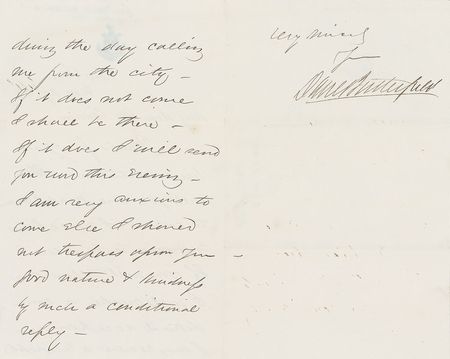 during the day calling
me from the city —
If it does not come
I shall be there —
If it does I will send
you word this evening —
I am very anxious to
come else I should
not trespass upon your —
good nature & kindness
by such a conditional
reply —
Very sincerely
Yrs
Daniel Butterfield